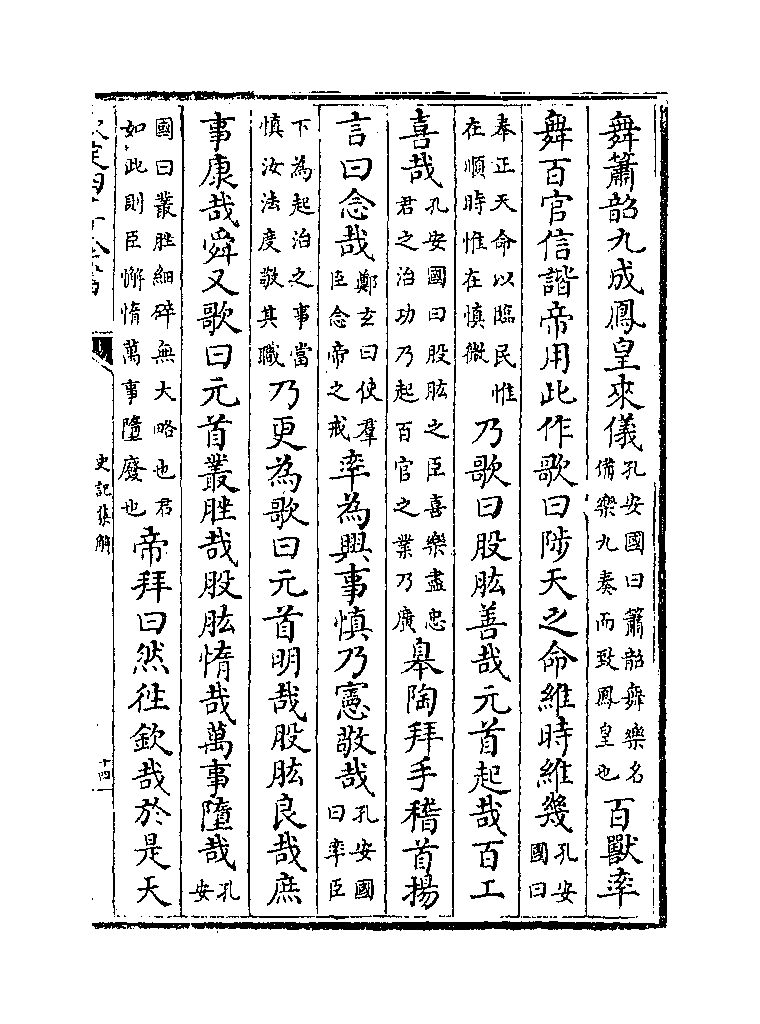 舞簫韶九成鳳皇來儀孔安國曰簫韶舜樂名備樂九奏而致鳳皇也百獸率
舞百官信諧帝用此作歌曰陟天之命維時維幾孔安國曰
奉正天命以臨民惟在順時惟在慎微乃歌曰股肱善哉元首起哉百工
喜哉孔安國曰股肱之臣喜樂盡忠君之治功乃起百官之業乃廣皋陶拜手稽首揚
言曰念哉鄭玄曰使羣臣念帝之戒率為興事慎乃憲敬哉孔安國曰率臣
下為起治之事當慎汝法度敬其職乃更為歌曰元首明哉股肱良哉庶
事康哉舜又歌曰元首叢脞哉股肱惰哉萬事墮哉孔安
國曰叢脞細碎無大略也君如此則臣懈惰萬事墮廢也帝拜曰然往欽哉於是天
史記集解
十四